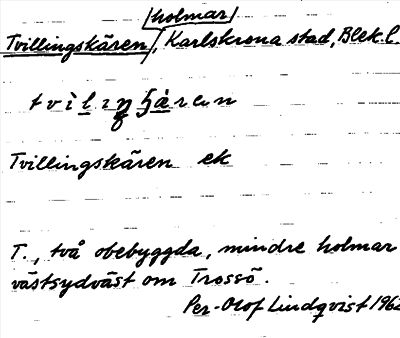 /holmar/
Tvillingskären, Karlskrona stad, Blek. l.
Tvillingskären ek
T., två obebyggda, mindre holmar
västsydväst om Trossö.
Per-Olof Lindqvist